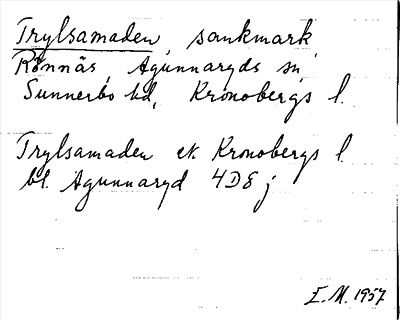 Trylsamaden, sankmark,
Rönnäs, Agunnaryds sn,
Sunnerbo hd, Kronobergs l.
Trylsamaden ek. Kronobergs l.
bl. Agunnaryd 4D8j
E.M. 1957